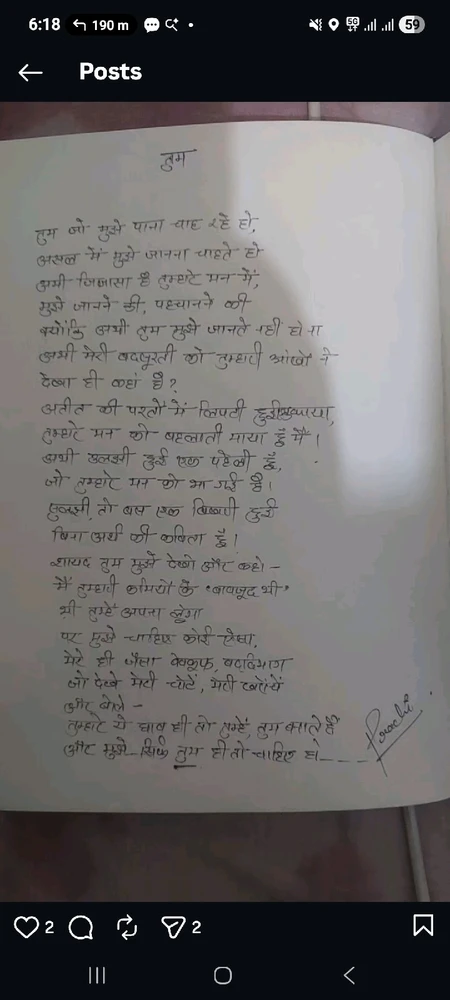 6:18
190 m
5G
59
Posts
तुम
तुम जो मुझे पाना चाह रहे हो,
असल में मुझे जानना चाहते हो
अभी जिज्ञासा है तुम्हारे मन में,
मुझे जानने की, पहचानने की
क्योंकि अभी तुम मुझे जानते नहीं हो ना
अभी मेरी बदसूरती को तुम्हारी आंखों ने
देखा ही कहां है?
अतीत की परतों में लिपटी हुई छाया,
तुम्हारे मन को बहलाती माया हूँ मैं।
अभी उलझी हुई एक पहेली हूँ,
जो तुम्हारे मन को भा गई है।
सुलझी तो बस एक बिखरी हुई
बिना अर्थ की कविता हूँ।
शायद तुम मुझे देखो और कहो -
मैं तुम्हारी कमियों के 'बावजूद भी'
भी तुम्हें अपना लूंगा
पर मुझे चाहिए कोई ऐसा,
मेरे ही जैसा बेवकूफ, बददिमाग
जो देखे मेरी चोटें, मेरी खरोंचें
और बोले -
तुम्हारे ये घाव ही तो तुम्हें, तुम बनाते हैं
और मुझे सिर्फ तुम ही तो चाहिए हो----
Prachi
2
2